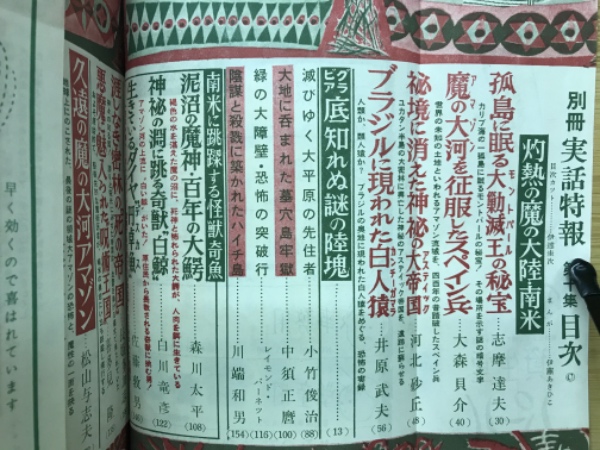 別冊 実話特報 第十集 目次
目次カット……伊達圭次
まんが……伊藤あきひこ
灼熱の魔の大陸・南米
孤島に眠る大動滅王の秘宝……志摩達夫(30)
モントバール
カリブ海の一孤島に眠るモントバールの秘宝! その場所を示す謎の暗号文字
魔の大河を征服したスペイン兵……大森貝介(40)
アマゾン
世界の未知の土地といわれるアマゾン流域を、四百年の昔踏破したスペイン兵
秘境に消えた神秘の大帝国……河北砂丘(48)
アステイック
ユカタン半島の大密林に興亡した神秘のアステイック帝国を、遺跡に蘇らせる
ブラジルに現われた白人猿……井原武夫(56)
人類か、類人猿か? ブラジルの奥地に現われた白人猿をめぐる、恐怖の実録
グラビア 底知れぬ謎の陸塊……(13)
滅びゆく大平原の先住者……小竹俊治(88)
大地に呑まれた墓穴島牢獄……中須正麿(100)
緑の大障壁・恐怖の突破行……レイモンド・バーネット(116)
陰謀と殺戮に築かれたハイチ島……川端和男(154)
南米に跳踩する怪獣奇魚
泥沼の魔神・百年の大鰐……森川太平(108)
褐色の水を湛えた魔の沼に、邪神と怖れられた大鰐が、人肉を餌に生きている
神秘の淵に跳る奇獣"白鯨"……白川竜彦(122)
アマゾン河の上流に"白い鯨"がいた!
久遠の魔の大河アマゾン……松山与志夫
早く効くので喜ばれています